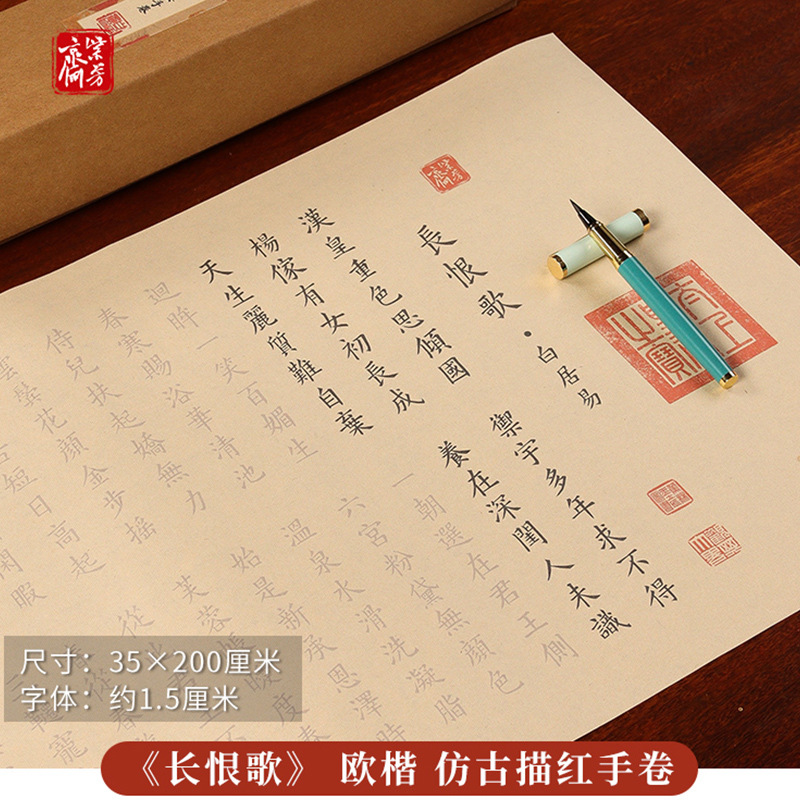 紫芳齋
長恨歌·白居易
漢皇重色思傾國
禦宇多年求不得
楊傢有女初長成
養在深閨人未識
天生麗質難自棄
一朝選在君王側
迴眸一笑百媚生
六宮粉黛無顏色
春寒賜浴華清池
溫泉水滑洗凝脂
侍兒扶起嬌無力
始是新承恩澤時
雲鬢花顏金步搖
芙蓉帳暖度
短日高起
從此
閑暇
春從春
尺寸：35×200厘米
字体：约1.5厘米
《长恨歌》 欧楷 仿古描红手卷